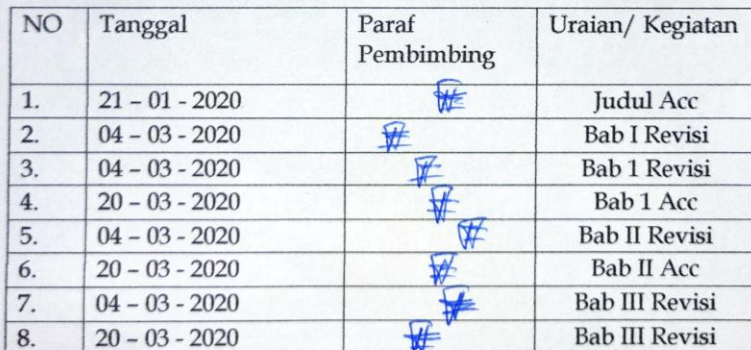 NO Tanggal Paraf Uraian/ Kegiatan
Pembimbing
1. 21 – 01 - 2020 Judul Acc
2. 04 – 03 - 2020 Bab I Revisi
3. 04 – 03 - 2020 Bab 1 Revisi
4. 20 – 03 - 2020 Bab 1 Acc
5. 04 – 03 - 2020 Bab II Revisi
6. 20 – 03 - 2020 Bab II Acc
7. 04 – 03 - 2020 Bab III Revisi
8. 20 – 03 - 2020 Bab III Revisi